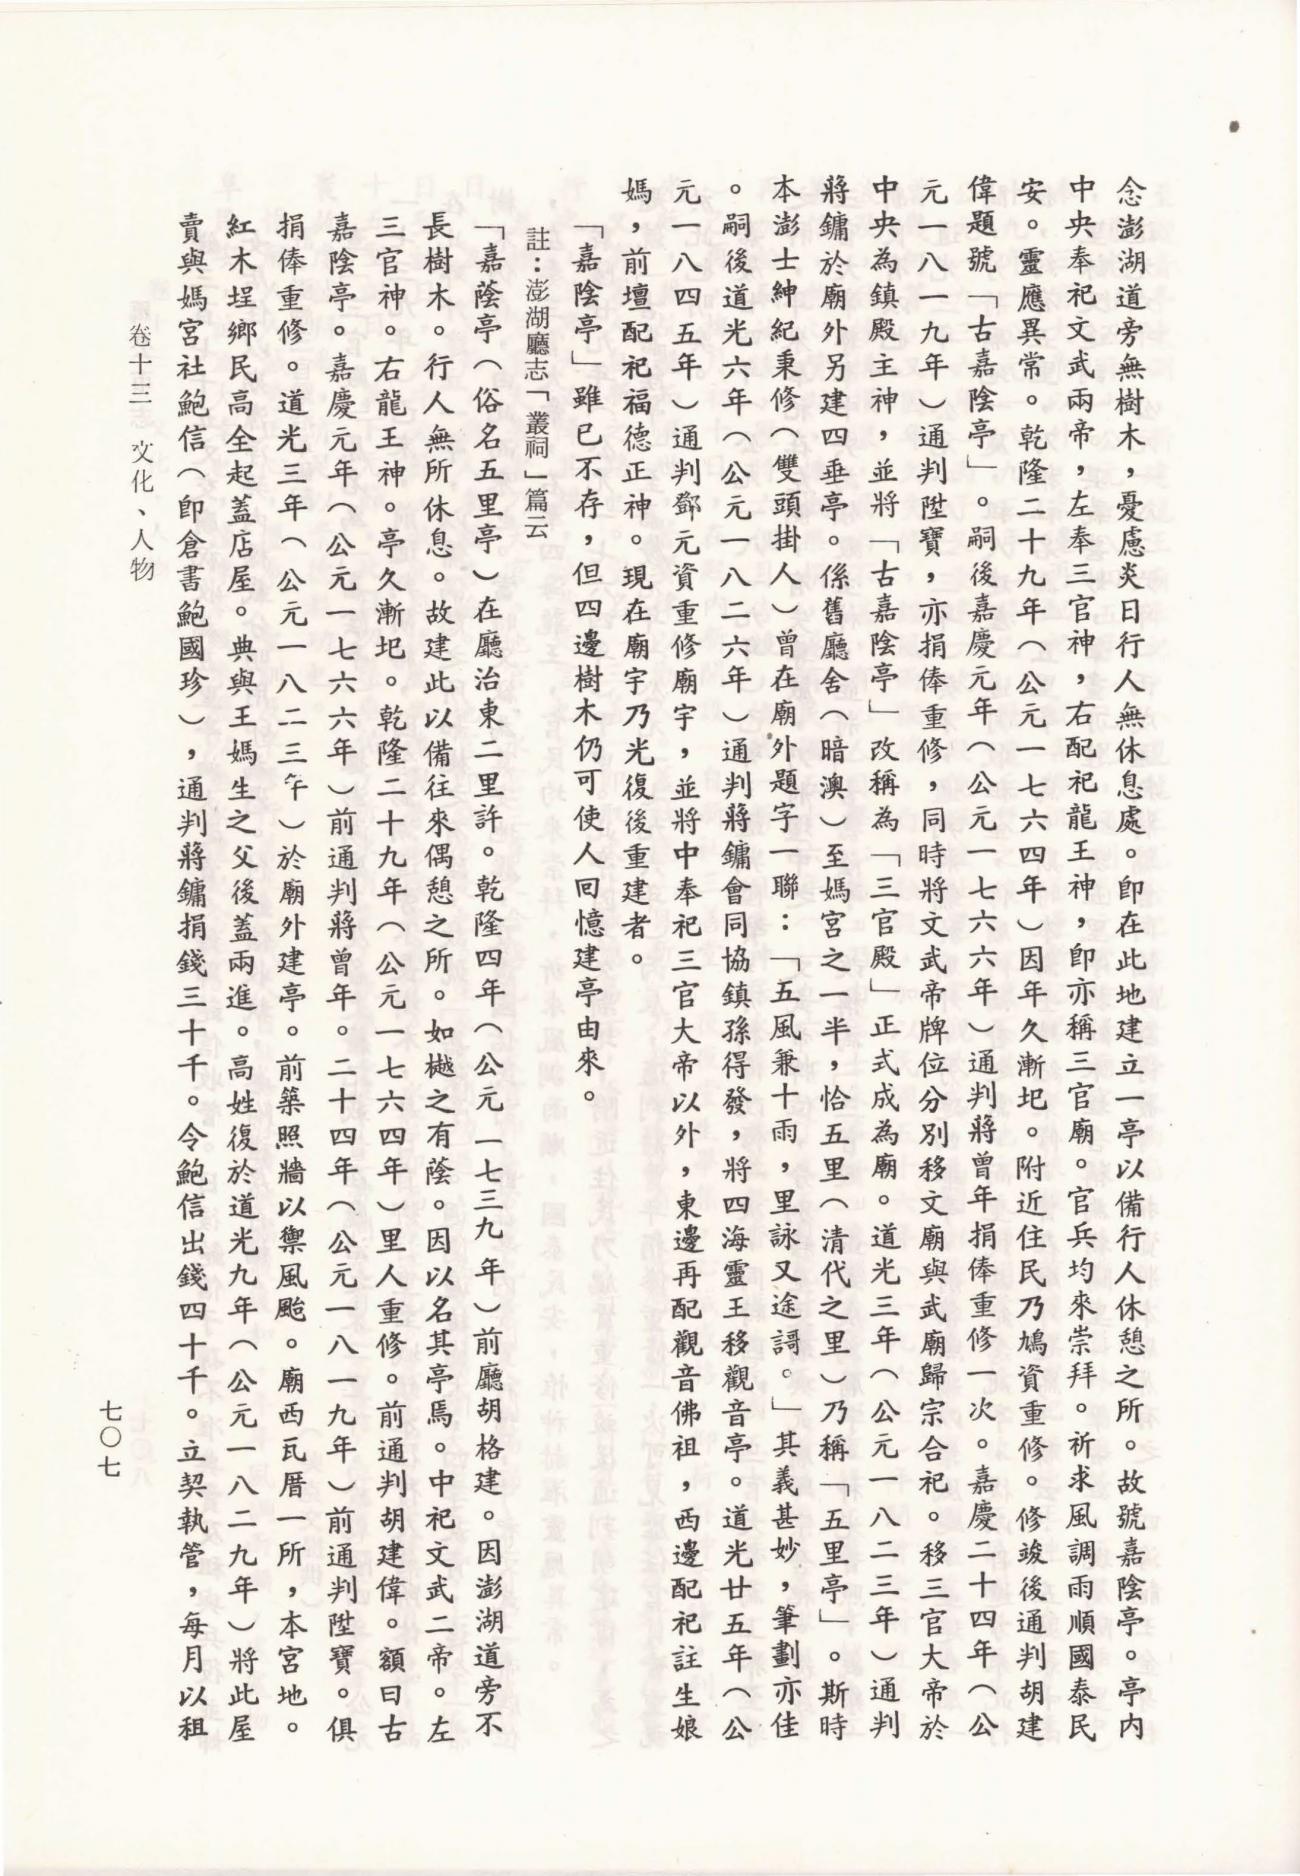 念澎湖道旁無樹木，憂慮炎日行人無休息處。即在此地建立一亭以備行人休憩之所。故號嘉陰亭。亭內
中央奉祀文武兩帝，左奉三官神，右配祀龍王神，即亦稱三官廟。官兵均來崇拜。祈求風調雨順國泰民
安。靈應異常。乾隆二十九年（公元一七六四年）因年久漸圯。附近住民乃鳩資重修。修竣後通判胡建
偉題號「古嘉陰亭」。嗣後嘉慶元年（公元一七六六年）通判蔣曾年捐俸重修一次。嘉慶二十四年（公
元一八一九年）通判陞寶，亦捐俸重修，同時將文武帝牌位分別移文廟與武廟歸宗合祀。移三官大帝於
中央為鎮殿主神，並將「古嘉陰亭」改稱為「三官殿」正式成為廟。道光三年（公元一八二三年）通判
蔣鏞於廟外另建四垂亭。係舊廳舍（暗澳）至媽宮之一半，恰五里（清代之里）乃稱「五里亭」。斯時
本澎士紳紀秉修（雙頭掛人）曾在廟外題字一聯：「五風兼十雨，里詠又途謌。」其義甚妙，筆劃亦佳
。嗣後道光六年（公元一八二六年）通判蔣鏞會同協鎮孫得發，將四海靈王移觀音亭。道光廿五年（公
元一八四五年）通判鄧元資重修廟宇，並將中奉祀三官大帝以外，東邊再配觀音佛祖，西邊配祀註生娘
媽，前壇配祀福德正神。現在廟宇乃光復後重建者。
「嘉陰亭」雖已不存，但四邊樹木仍可使人回憶建亭由來。
註：澎湖廳志「叢祠」篇云
「嘉蔭亭（俗名五里亭）在廳治東二里許。乾隆四年（公元一七三九年）前廳胡格建。因澎湖道旁不
長樹木。行人無所休息。故建此以備往來偶憩之所。如樾之有蔭。因以名其亭焉。中祀文武二帝。左
三官神。右龍王神。亭久漸圯。乾隆二十九年（公元一七六四年）里人重修。前通判胡建偉。額曰古
嘉陰亭。嘉慶元年（公元一七六六年）前通判蔣曾年。二十四年（公元一八一九年）前通判陞寶。俱
捐俸重修。道光三年（公元一八二三年）於廟外建亭。前築照牆以禦風颱。廟西瓦厝一所，本宮地。
紅木埕鄉民高全起蓋店屋。典與王媽生之父後蓋兩進。高姓復於道光九年（公元一八二九年）將此屋
賣與媽宮社鮑信（即倉書鮑國珍），通判蔣鏞捐錢三十千。令鮑信出錢四十千。立契執管，每月以租
卷十三 文化、人物
七〇七